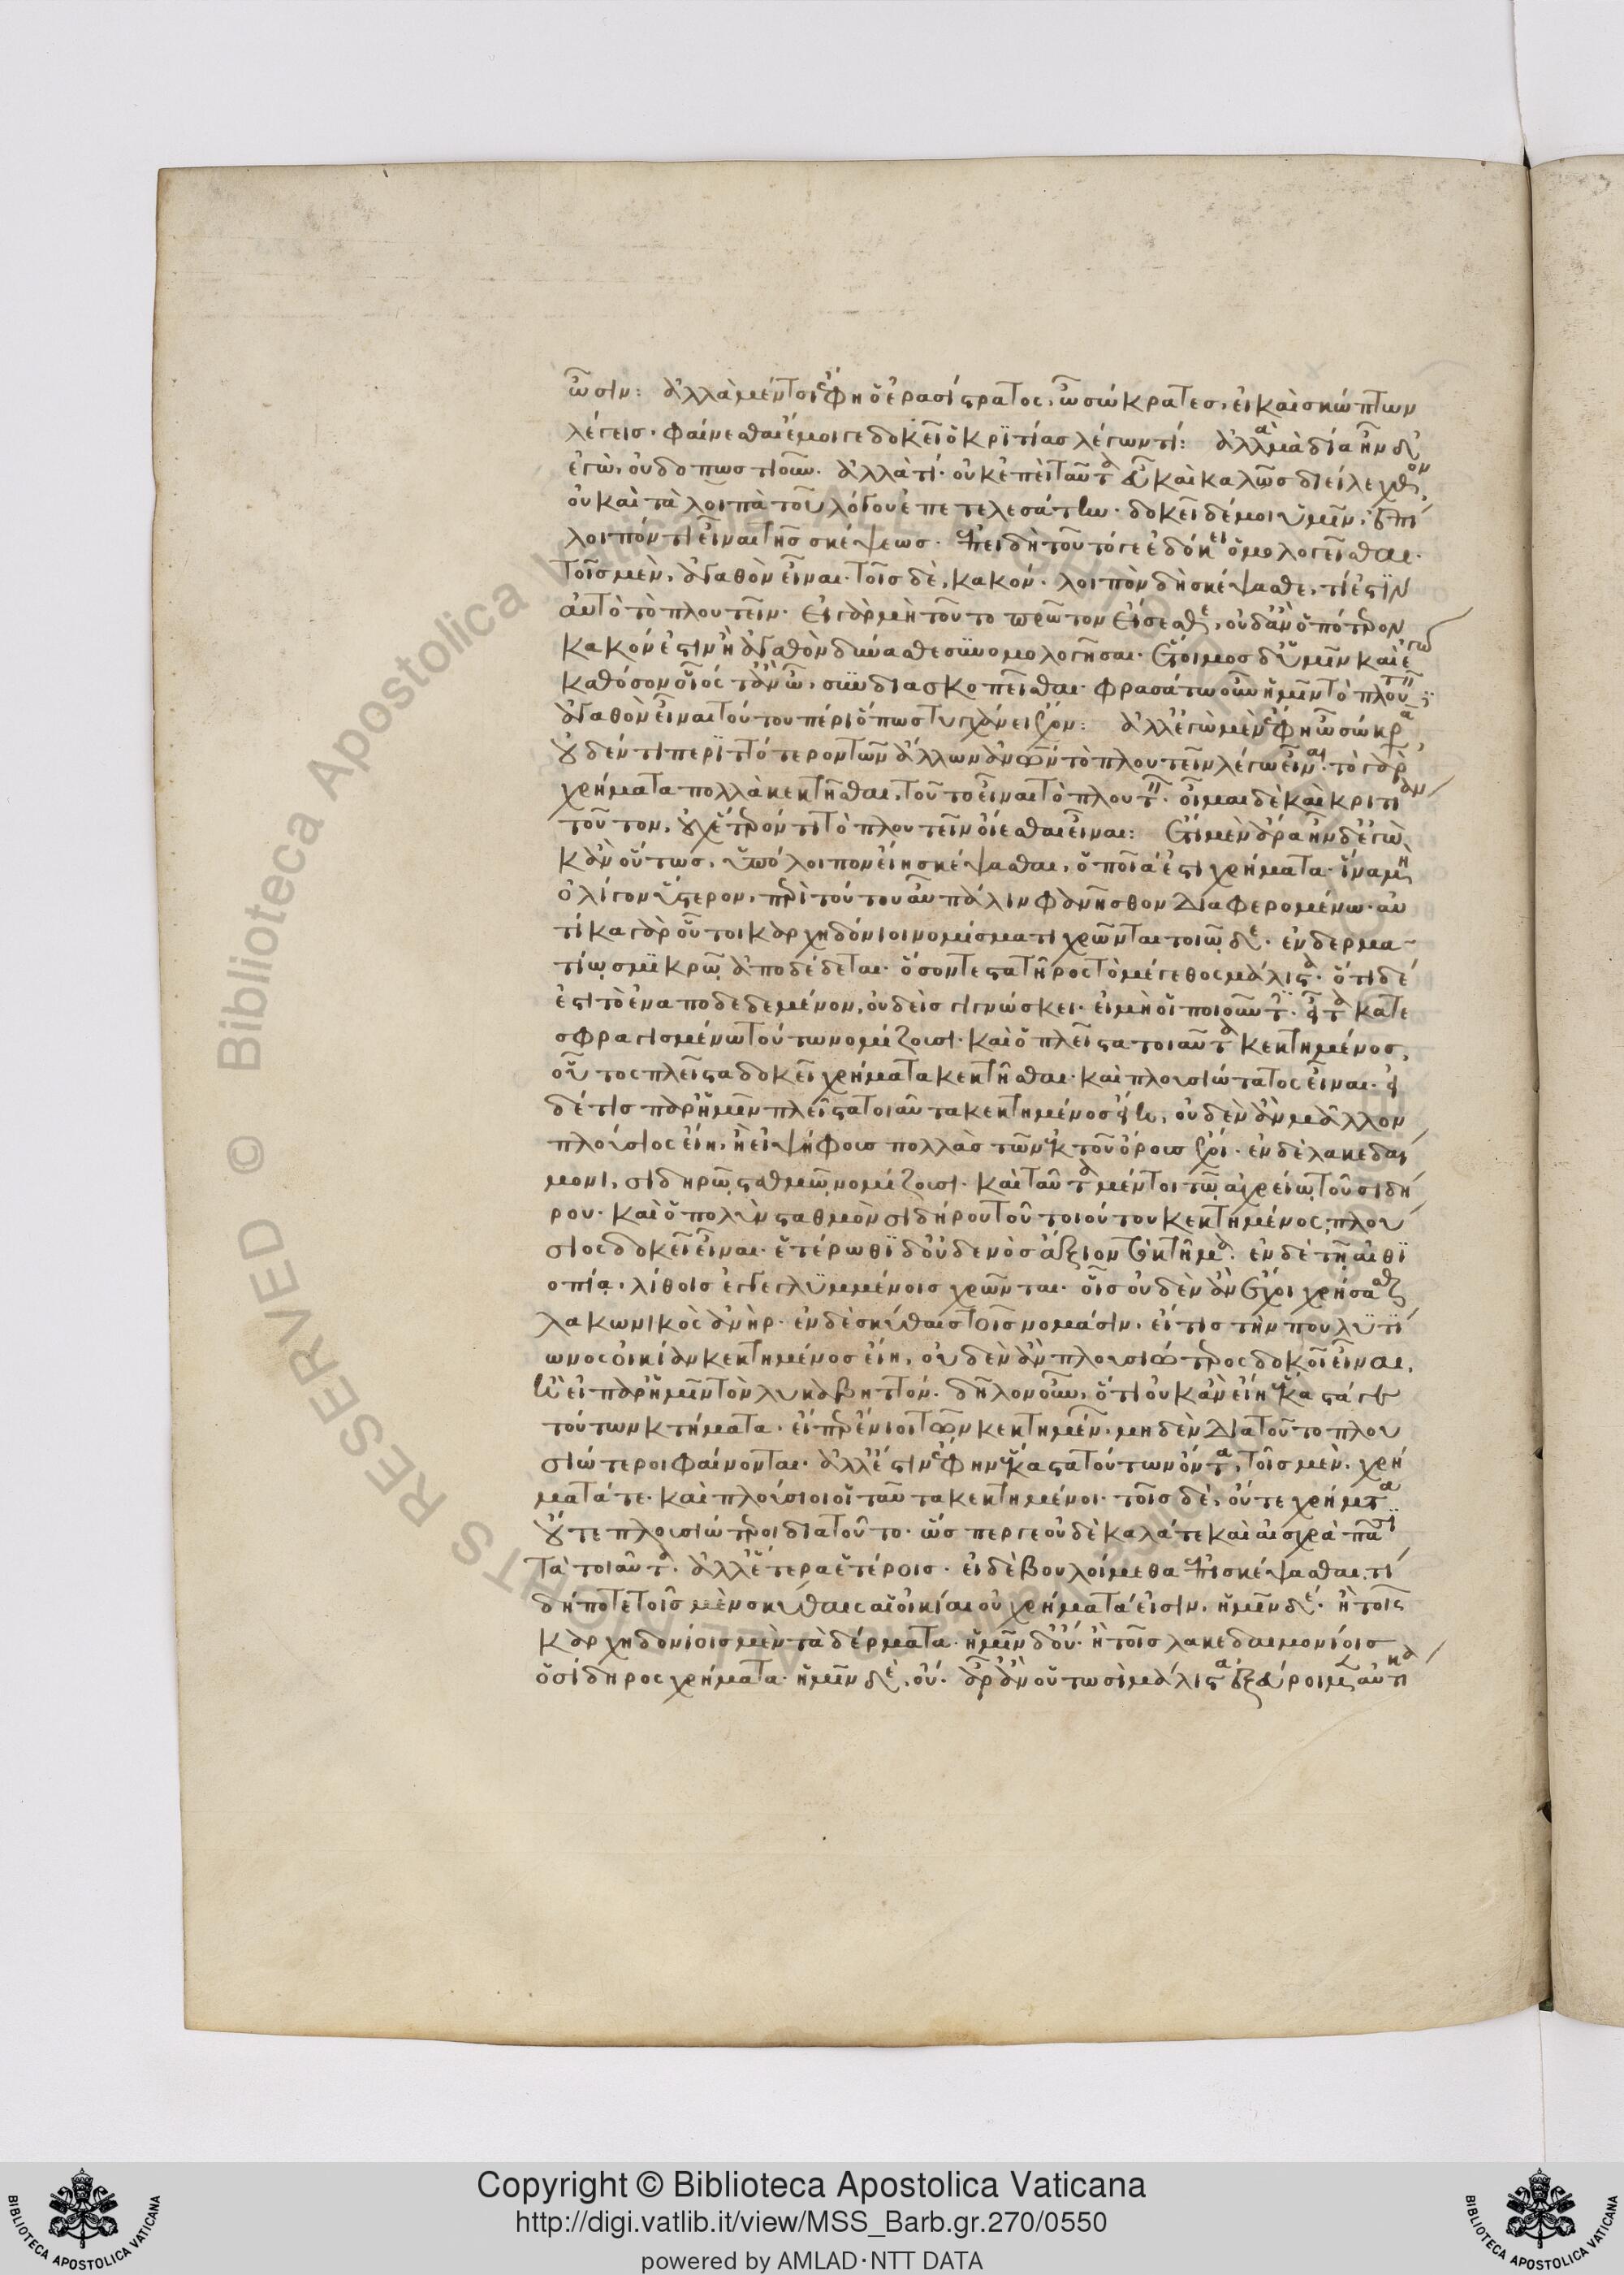 ὦσιν: ἀλλὰ μέντοι ἔφη ὁ ἐρασίστρατος, ὦ σώκρατες, εἰ καὶ σκώπτων
λέγεις· φαίνεσθαι ἔμοιγε δοκεῖ ὁ κριτίας λέγων τί: ἀλλὰ μὰ δία ἦν δ'
ἐγὼ, οὐδοπωστιοῦν. ἀλλὰ τί· οὐκ ἐπεὶ ταῦτα εὖ καὶ καλῶς διείλεχθον,
οὐ καὶ τὰ λοιπὰ τοῦ λόγου ἐπετελεσάτην· δοκεῖ δέ μοι ὑμῖν, ἔτι
λοιπόν τι εἶναι τῆς σκέψεως. ἐπειδὴ τοῦτό γε ἐδόκει ὁμολογεῖσθαι·
τοῖς μὲν, ἀγαθὸν εἶναι· τοῖς δὲ, κακόν. λοιπὸν δὴ σκέψασθε, τί ἐστιν
αὐτὸ τὸ πλουτεῖν· εἰ γὰρ μὴ τοῦτο πρῶτον εἴσεσθε, οὐδ' ἂν ὁπότερον
κακόν ἐστιν ἢ ἀγαθὸν δύνασθε συνομολογῆσαι. ἕτοιμος δ' ὑμῖν καὶ ἐγὼ
καθόσον οἷός τ' ἂν ὦ, συνδιασκοπεῖσθαι· φρασάτω οὖν ἡμῖν τὸ πλουτεῖν
ἀγαθὸν εἶναι τούτου πέρι ὅπως τυγχάνει ὄν: ἀλλ' ἐγὼ μὲν ἔφη ὦ σώκρα
οὐδέν τι περιττότερον τῶν ἄλλων ἀνῶν τὸ πλουτεῖν λέγω εἶναι· τὸ γὰρ
χρήματα πολλὰ κεκτῆσθαι, τοῦτο εἶναι τὸ πλουτεῖν. οἶμαι δὲ καὶ κριτίαν
τοῦτον, οὐχ ἕτερόν τι τὸ πλουτεῖν οἴεσθαι εἶναι: ἔτι μὲν ἄρα ἦν δ' ἐγὼ
κἂν οὕτως, ὑπόλοιπον εἴη σκέψασθαι, ὁποῖά ἐστι χρήματα· ἵνα μὴ
ὀλίγον ὕστερον, περὶ τούτου αὖ πάλιν φανῆσθον διαφερομένω· αὐ
τίκα γὰρ οὗτοι καρχηδόνιοι νομίσματι χρῶνται τοιῷδε· ἐν δερμα
τίῳ σμικρῷ ἀποδέδεται· ὅσον γε στατῆρος τὸ μέγεθος μάλιστα· ὅ τι δέ
ἐστι τὸ ἐναποδεδεμένον, οὐδεὶς γιγνώσκει· εἰ μὴ οἱ ποιοῦντες. εἶτα κατε
σφραγισμένω τούτω νομίζουσι· καὶ ὁ πλεῖστα τοιαῦτα κεκτημένος,
οὗτος πλεῖστα δοκεῖ χρήματα κεκτῆσθαι· καὶ πλουσιώτατος εἶναι· εἰ
δέ τις παρ' ἡμῖν πλεῖστα τοιαῦτα κεκτημένος εἴη, οὐδὲν ἂν μᾶλλον
πλούσιος εἴη, ἢ εἰ ψήφους πολλὰς τῶν ἐκ τοῦ ὄρους ἔχοι. ἐν δὲ λακεδαί
μονι, σιδηρῷ σταθμῷ νομίζουσι· καὶ ταῦτα μέντοι τῷ ἀχρείῳ τοῦ σιδή
ρου· καὶ ὁ πολὺν σταθμὸν σιδήρου τοῦ τοιούτου κεκτημένος, πλού
σιος δοκεῖ εἶναι· ἑτέρωθι δ' οὐδενὸς ἄξιον τὸ κτῆμα. ἐν δὲ τῇ αἰθι
οπίᾳ, λίθοις ἐγγεγλυμμένοις χρῶνται· οἷς οὐδὲν ἂν ἔχοι χρήσασθαι
λακωνικὸς ἀνὴρ· ἐν δὲ σκύθαις τοῖς νομάσιν, εἴ τις τὴν πουλυτί
ωνος οἰκίαν κεκτημένος εἴη, οὐδὲν ἂν πλουσιώτερος δοκοῖ εἶναι,
ἢ εἰ παρ' ἡμῖν τὸν λυκαβηττόν. δῆλον οὖν, ὅτι οὐκ ἂν εἴη ἕκαστά γε
τούτων κτήματα· εἴπερ ἔνιοι τῶν κεκτημένων, μηδὲν διὰ τοῦτο πλου
σιώτεροι φαίνονται. ἀλλ' ἔστιν ἔφην ἕκαστα τούτων ὄντα, τοῖς μὲν, χρή
ματά τε· καὶ πλούσιοι οἱ ταῦτα κεκτημένοι· τοῖς δὲ, οὔτε χρήματα
οὔτε πλουσιώτεροι διὰ τοῦτο· ὥσπερ γε οὐδὲ καλά τε καὶ αἰσχρὰ πᾶσι
τὰ τοιαῦτα. ἀλλ' ἕτερα ἑτέροις. εἰ δὲ βουλοίμεθα ἐπισκέψασθαι, τί
δήποτε τοῖς μὲν σκύθαις αἱ οἰκίαι οὐ χρήματά εἰσιν, ἡμῖν δέ· ἢ τοῖς
καρχηδονίοις μὲν τὰ δέρματα· ἡμῖν δ' οὔ· ἢ τοῖς λακεδαιμονίοις
ὁ σίδηρος χρήματα· ἡμῖν δὲ, οὔ. ἆρ' ἂν οὑτωσὶ μάλιστα ἐξεύροιμεν αὐτίκα
Biblioteca Apostolica Vaticana
RIGHTS RESERVED ©
Copyright © Biblioteca Apostolica Vaticana
http://digi.vatlib.it/view/MSS_Barb.gr.270/0550
powered by AMLAD·NTT DATA
BIBLIOTECA APOSTOLICA VATICANA
BIBLIOTECA APOSTOLICA VATICANA